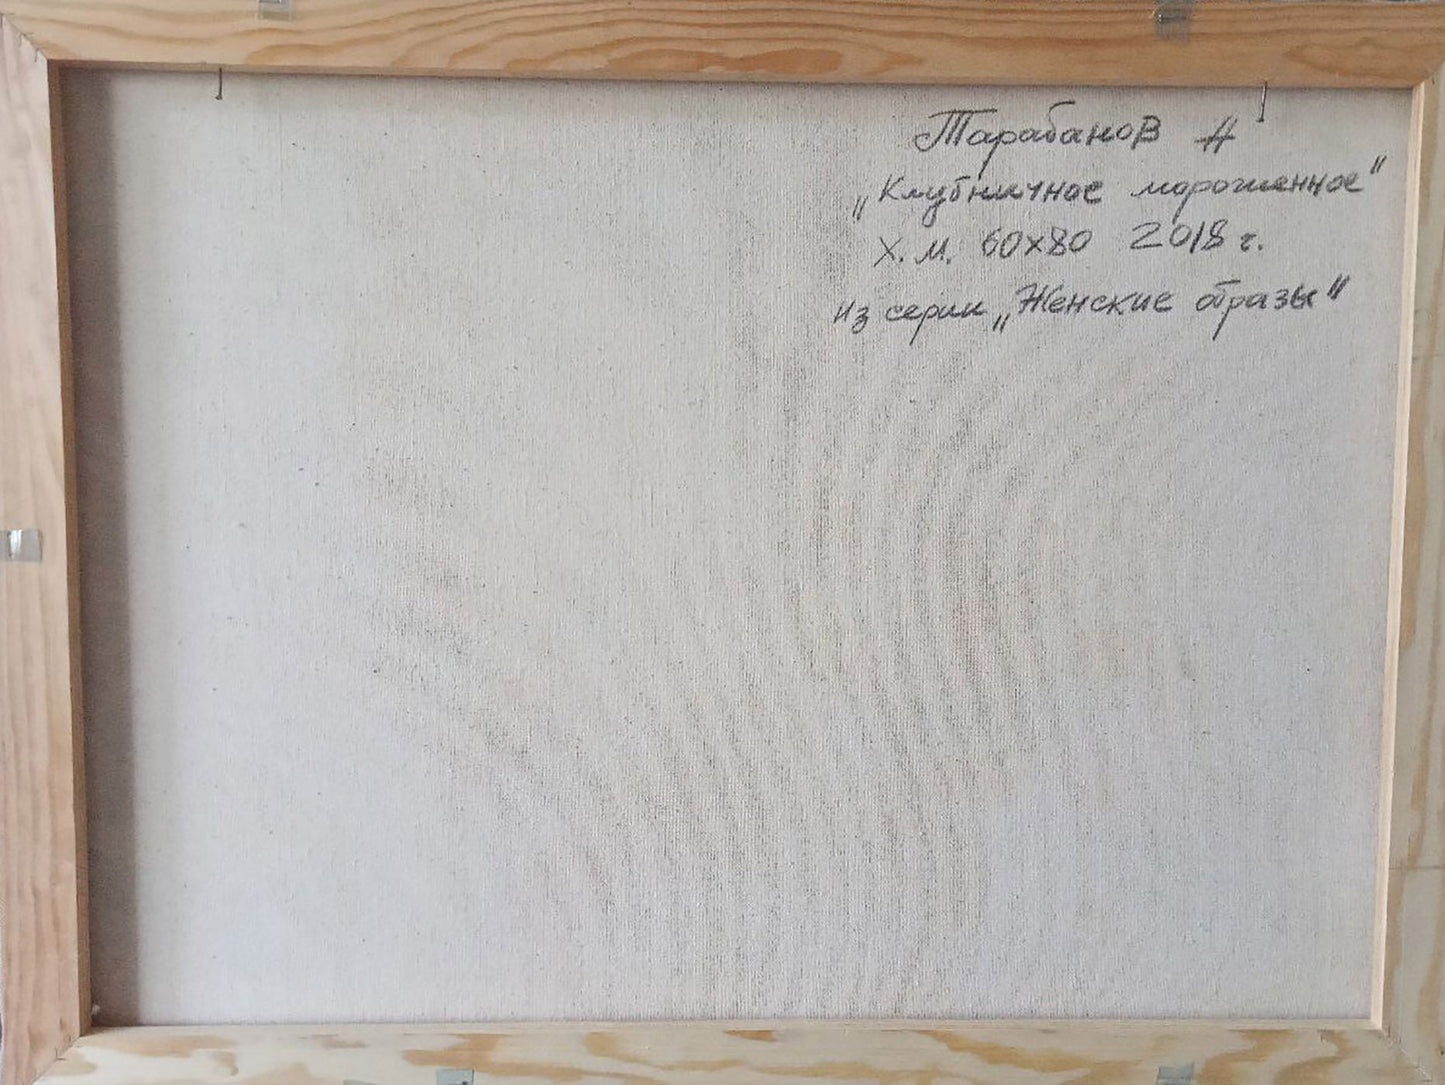 Тарабанов А
„Клубничное мороженное"
Х.М. 60х80 2018 г.
из серии „Женские образы"